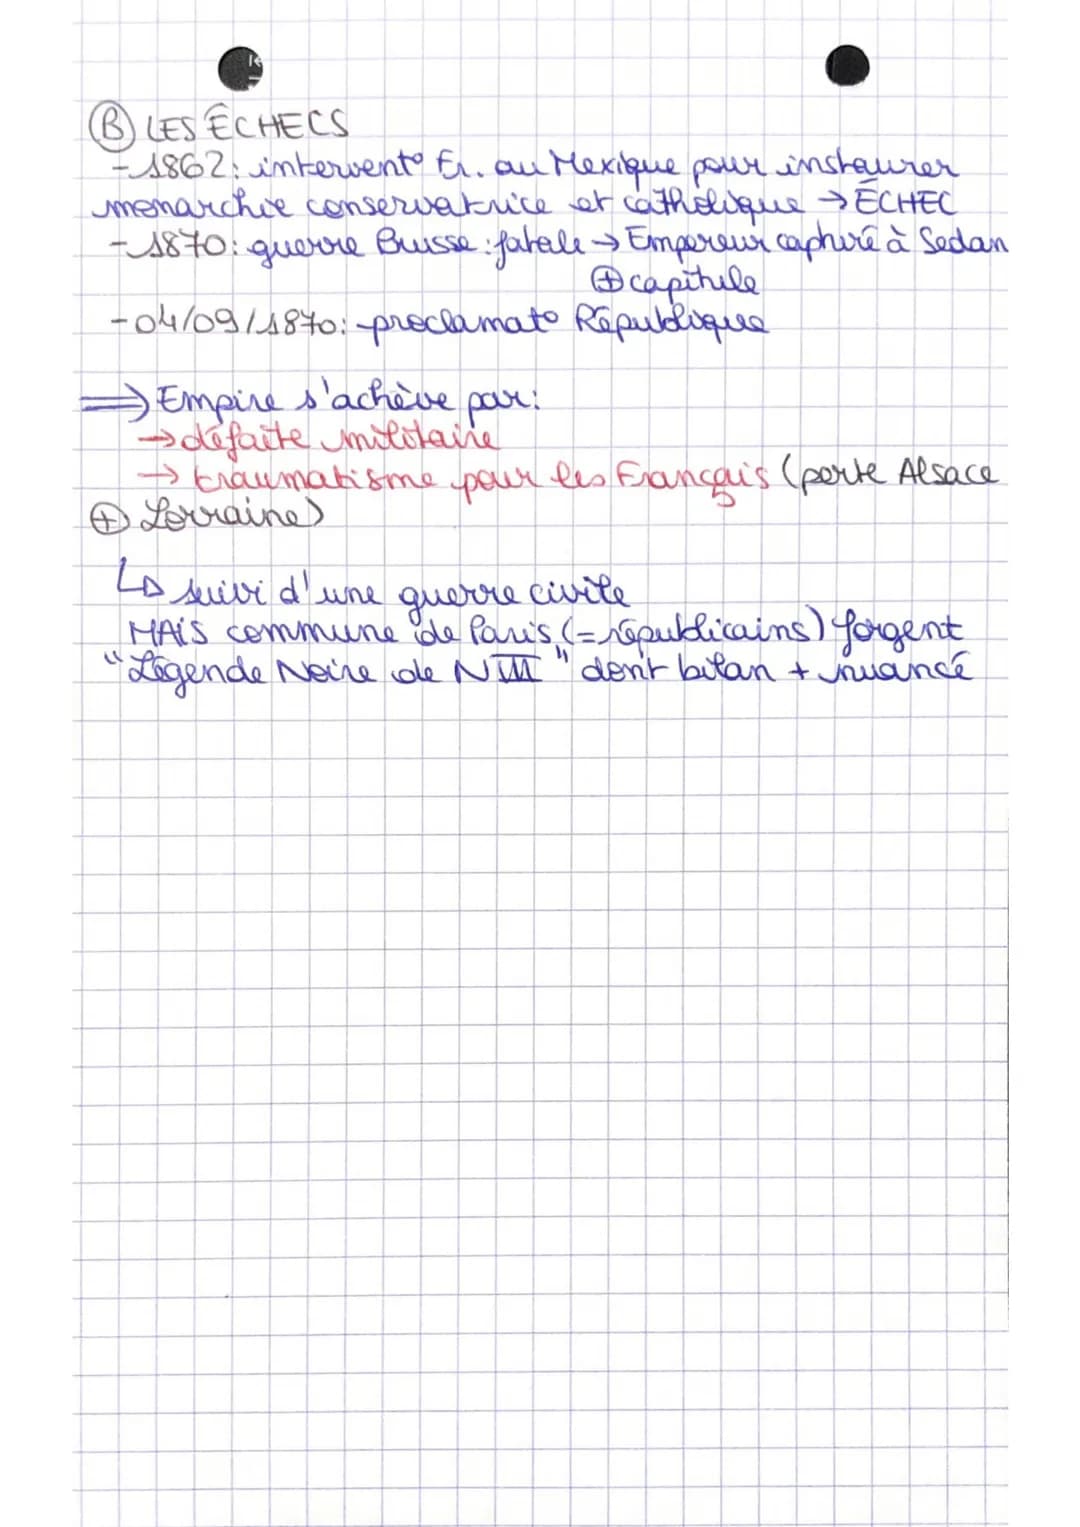 Ⓑ LES ÉCHECS
- 1862: intervent° Fr. au Mexique pour instaurer
monarchie conservatrice et catholique → ÉCHEC
- 1870: guerre Prusse : fatale → Empereur capturé à Sedan
⊕ capitule
- 04/09/1870: proclamat° République
⇒ Empire s'achève par:
→ défaite militaire
→ traumatisme pour les Français (perte Alsace
⊕ Lorraine)
↳ suivi d'une guerre civile
MAIS commune de Paris (= républicains) forgent
"Légende Noire de NIII" dont bilan + nuancé